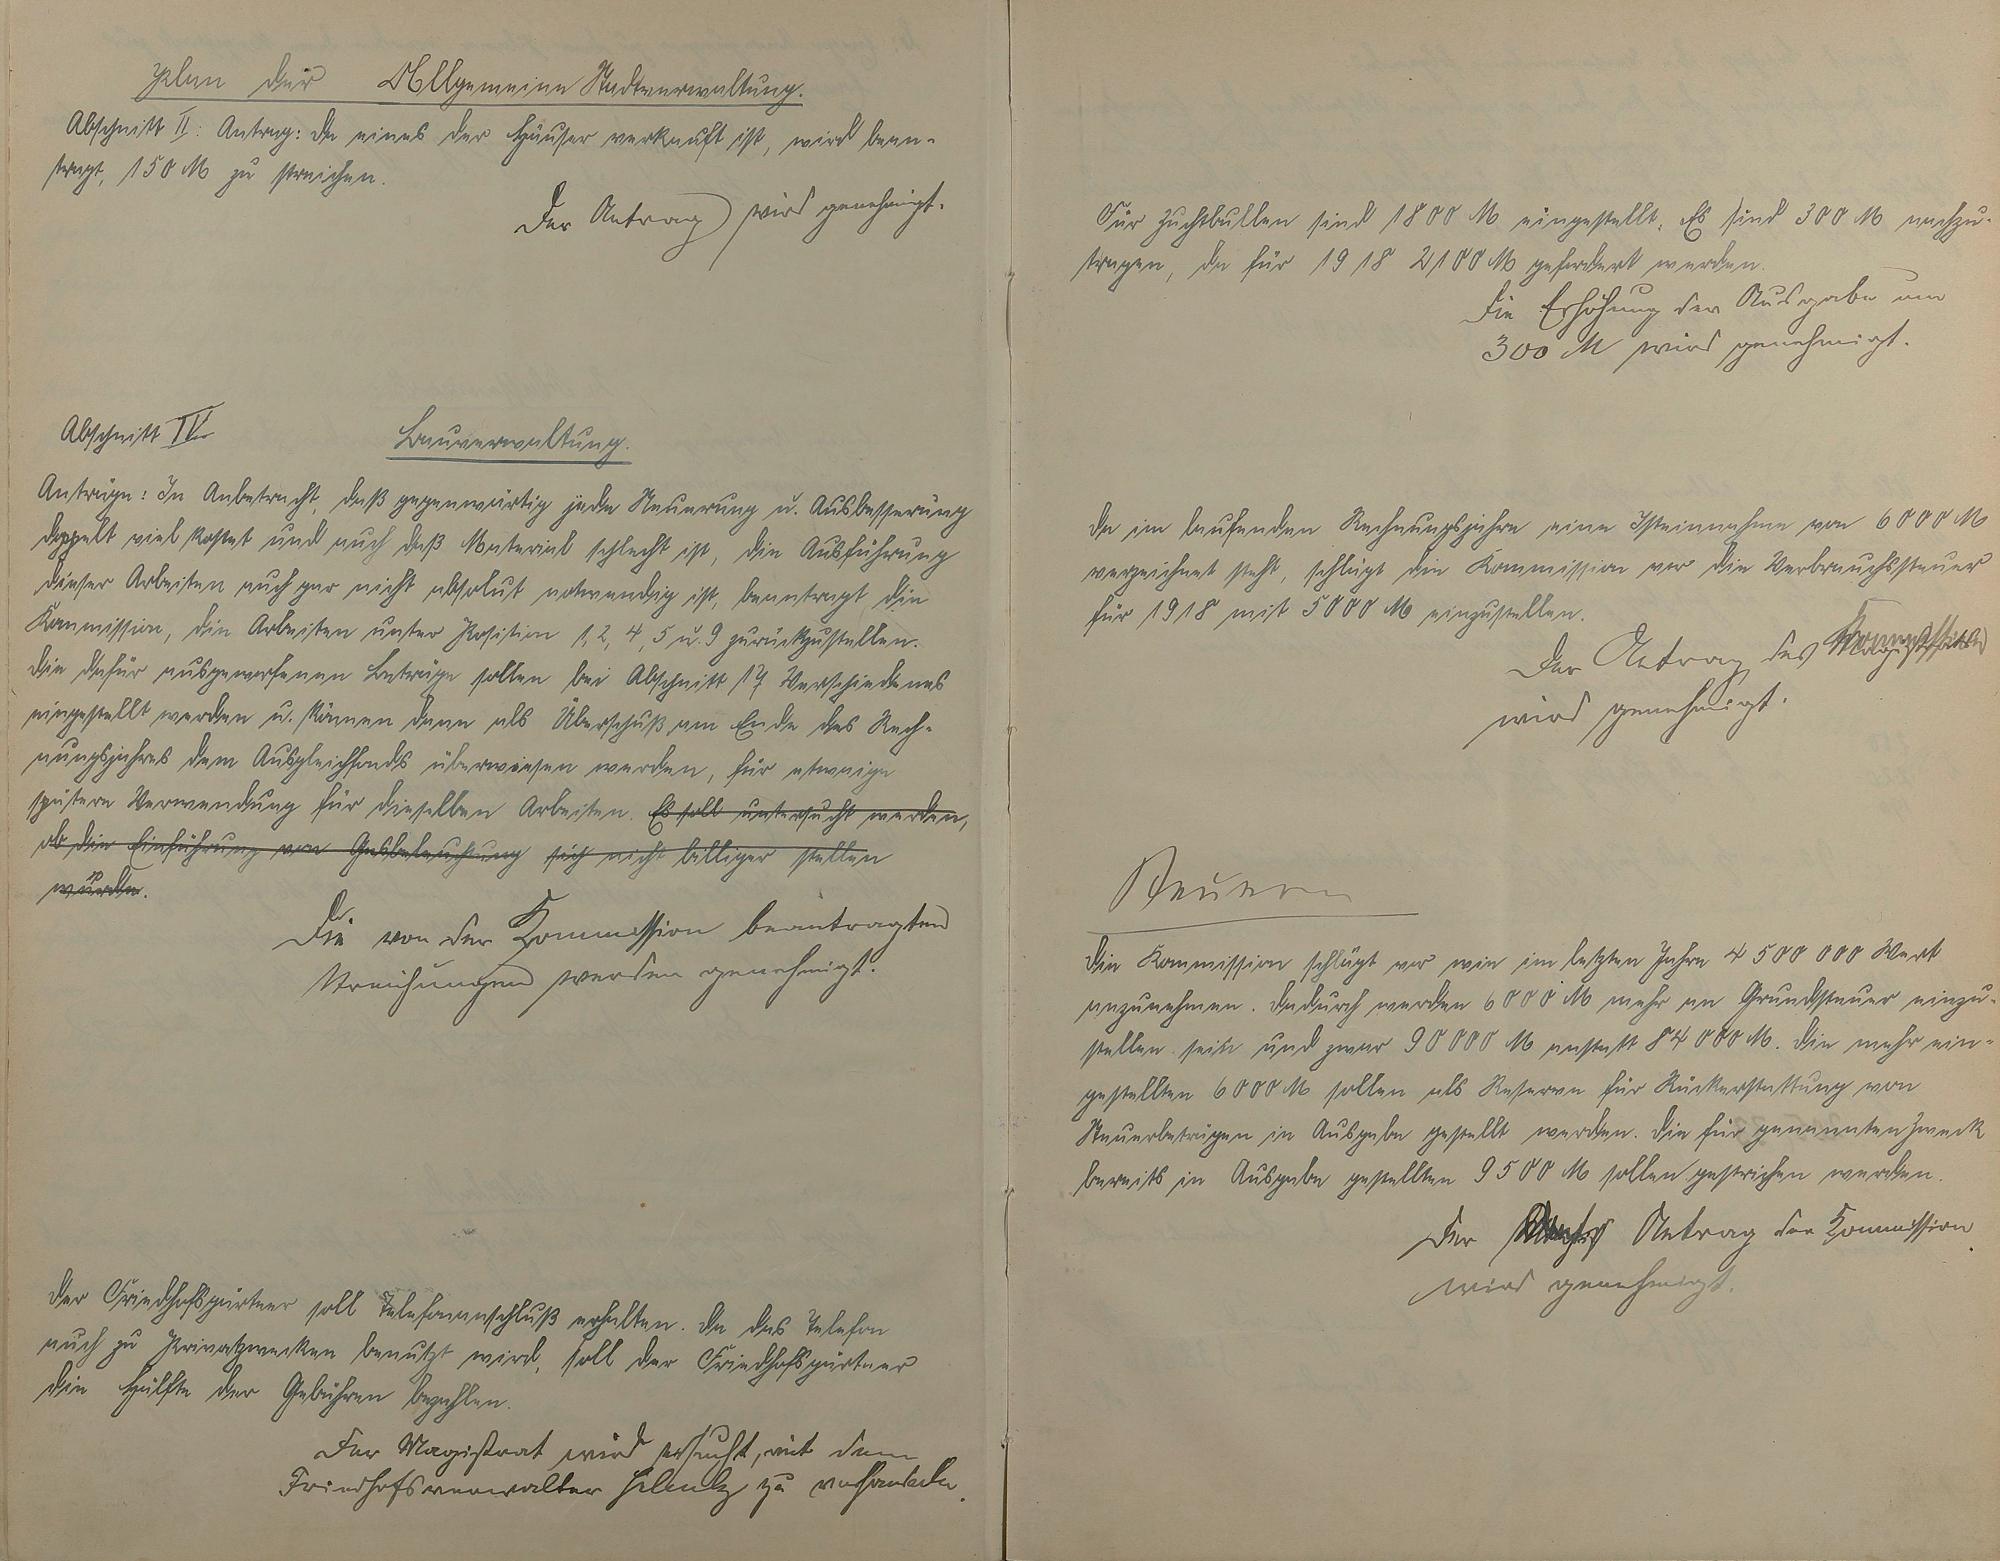 Plan der Allgemeine Stadtverwaltung.
Abschnitt II: Antrag: Da eines der Häuser verkauft ist, wird bean-
tragt, 150 M zu streichen.
Der Antrag wird genehmigt.
Abschnitt IV
Bauverwaltung.
Anträge: In Anbetracht, daß gegenwärtig jede Neuerung u. Ausbesserung
doppelt viel kostet und auch daß Material schlecht ist, die Ausführung
dieser Arbeiten auch gar nicht absolut notwendig ist, beantragt die
Kommission, die Arbeiten unter Position 1, 2, 4, 5 u. 9 zurückzustellen.
Die dafür ausgeworfenen Beträge sollen bei Abschnitt 17 Verschiedenes
eingestellt werden u. können dann als Überschuß am Ende des Rech-
nungsjahres dem Ausgleichfonds überwiesen werden, für etwaige
spätere Verwendung für dieselben Arbeiten. Es soll untersucht werden,
ob die Einführung von Gasbeleuchtung sich nicht billiger stellen
würde.
Die von der Kommission beantragten
Streichungen werden genehmigt.
Der Friedhofsgärtner soll Telefonanschluß erhalten. Da das Telefon
auch zu Privatzwecken benutzt wird, soll der Friedhofsgärtner
die Hälfte der Gebühren bezahlen.
Der Magistrat wird ersucht, mit dem
Friedhofsverwalter zu verhandeln.
Für Zuchtbullen sind 1800 M eingestellt. Es sind 300 M nachzu-
tragen, da für 1918 2100 M gefordert werden.
Die Erhöhung der Ausgabe um
300 M wird genehmigt.
Da im laufenden Rechnungsjahre eine Isteinnahme von 6000 M
verzeichnet steht, schlägt die Kommission vor die Verbrauchssteuer
für 1918 mit 5000 M einzustellen.
Der Antrag des
wird genehmigt.
Steuern
Die Kommission schlägt vor wie im letzten Jahre 4 500 000 Wert
anzunehmen. Dadurch werden 6000 M mehr an Grundsteuer einzu-
stellen sein und zwar 90 000 M anstatt 84 000 M. Die mehr ein-
gestellten 6000 M sollen als Reserve für Rückerstattung von
Steuerbeträgen in Ausgabe gestellt werden. Die für genannten Zweck
bereits in Ausgabe gestellten 9500 M sollen gestrichen werden.
Der Antrag der Kommission
wird genehmigt.